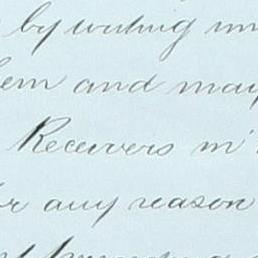 by writing un
em and may
Receivers in
or any reason